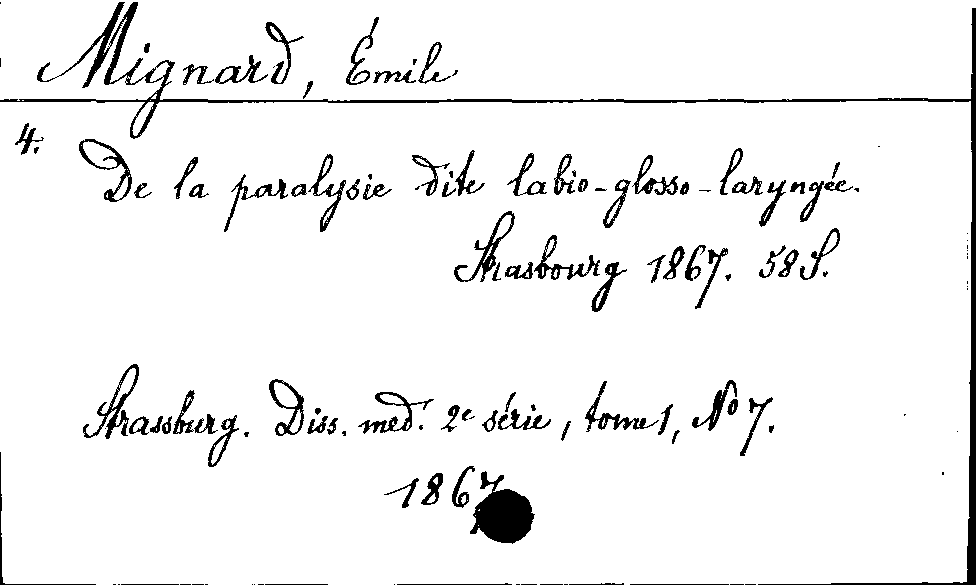 Mignard, Émile
4.
De la paralysie dite labio-glosso-laryngée.
Strasbourg 1867. 58 S.
Strassburg. Diss. med. 2e série, tome 1, No 7.
1867